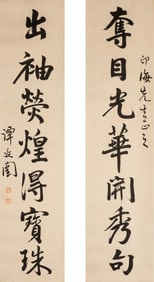 奪目光華開秀句
印海先生正之
出袖熒煌得寶珠
譚延闓